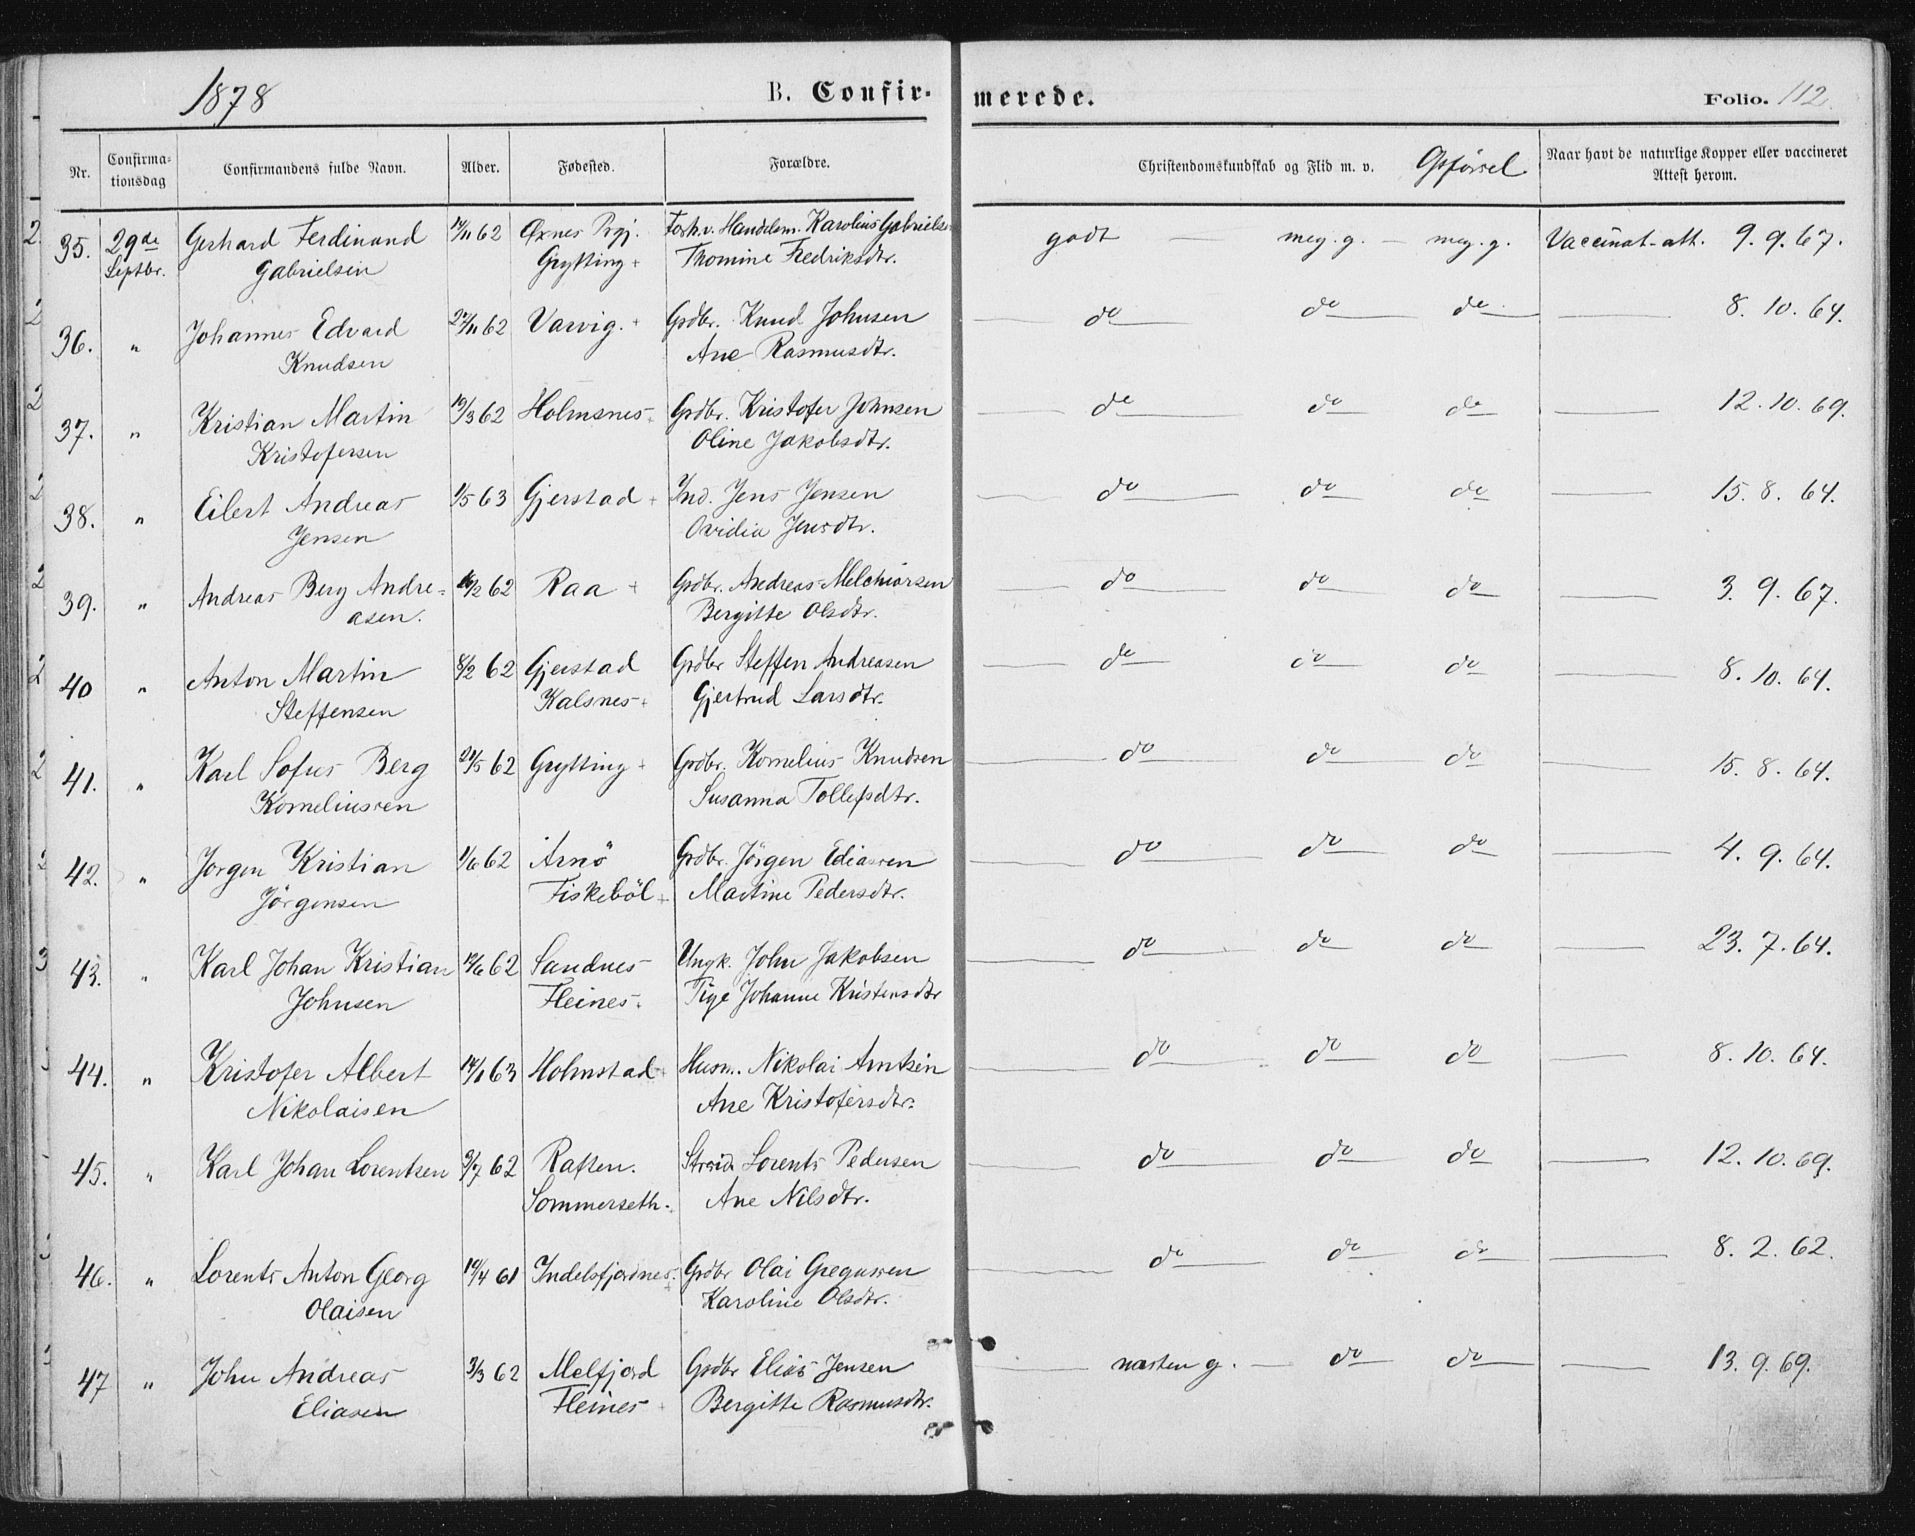 1878 B. Confirmerede. Folio. 112.
Nr. Confirmationsdag Confirmandens fulde Navn. Alder. Fødested. Forældre. Christendomskundskab og Flid m. v. Opførsel Naar havt de naturlige Kopper eller vaccineret Attest herom.
35. 29de Septbr. Gerhard Ferdinand 62 Øxnes Prgj. Handelsm. Karolius Gabrielsen godt — meg. g. — meg. g. Vaccinat. att. 9. 9. 67.
Gabrielsen Grytting + Thomine Fredriksdtr.
36. " Johannes Edvard 62 Varvig. + Grdbr. Knud Johnsen do do do 8. 10. 64.
Knudsen Ane Rasmusdtr.
37. " Kristian Martin 62 Holmsnes Grdbr. Kristofer Johnsen do do do 12. 10. 69.
Kristofersen Oline Jakobsdtr.
38. " Eilert Andreas 1/5 63 Gjerstad + Ind. Jens Jensen do do do 15. 8. 64.
Jensen Ovidia Jensdtr.
39. " Andreas Berg Andre= 62 Raa + Grdbr. Andreas Melchiorsen do do do 3. 9. 67.
asen. Bergitte Olsdtr.
40 " Anton Martin 8/2 62 Gjerstad Grdbr Steffen Andreasen do do do 8. 10. 64.
Steffensen Kalsnes + Gjertrud Larsdtr.
41. " Karl Sofus Berg 62 Grytting + Grdbr. Kornelius Knudsen do do do 15. 8. 64.
Korneliussen Susanna Tollefsdtr.
42. " Jorgen Kristian 1/6 62 Arnö Grdbr. Jörgen Eliassen do do do 4. 9. 64.
Jörgensen Fiskeböl + Martine Pedersdtr.
43. " Karl Johan Kristian 62 Sandnes Ungk. John Jakobsen do do do 23. 7. 64.
Johnsen Fleines. Pige Johanne Kristensdtr
44. " Kristofer Albert 14/1 63 Holmstad + Husm. Nikolai Arntsen do do do 8. 10. 64.
Nikolaisen Ane Kristofersdtr.
45. " Karl Johan Lorentsen 9/7 62 Raften. Lorents Pedersen do do do 12. 10. 69.
Sommerseth. + Ane Nilsdtr.
46. " Lorents Anton Georg 19/4 61 Indelsfjordnes. Grdbr Olai Gregussen do do do 8. 2. 62.
Olaisen + Karoline Olsdtr.
47 " John Andreas 3/3 62 Melfjord Grdbr Elias Jensen næsten g. — do do 13. 9. 69.
Eliasen Fleines + Bergitte Rasmusdtr.